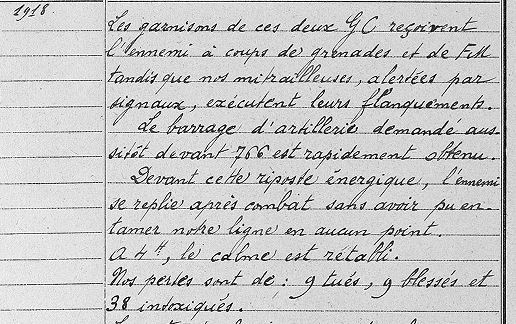 1918.
Les garnisons de ces deux GC reçoivent
l'ennemi à coups de grenades et de FM
tandis que nos mitrailleuses, alertées par
signaux, exécutent leurs flanquements.
Le barrage d'artillerie demandé aus-
sitôt devant 766 est rapidement obtenu.
Devant cette riposte énergique, l'ennemi
se replie après combat sans avoir pu en-
tamer notre ligne en aucun point.
A 4H, le calme est rétabli.
Nos pertes sont de : 9 tués, 9 blessés et
38 intoxiqués.